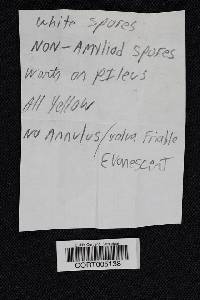 white spores
NON-Amyliod spores
Warts on PIleus
All Yellow
No Annulus/volva Friable
Evanescent
CORT005138